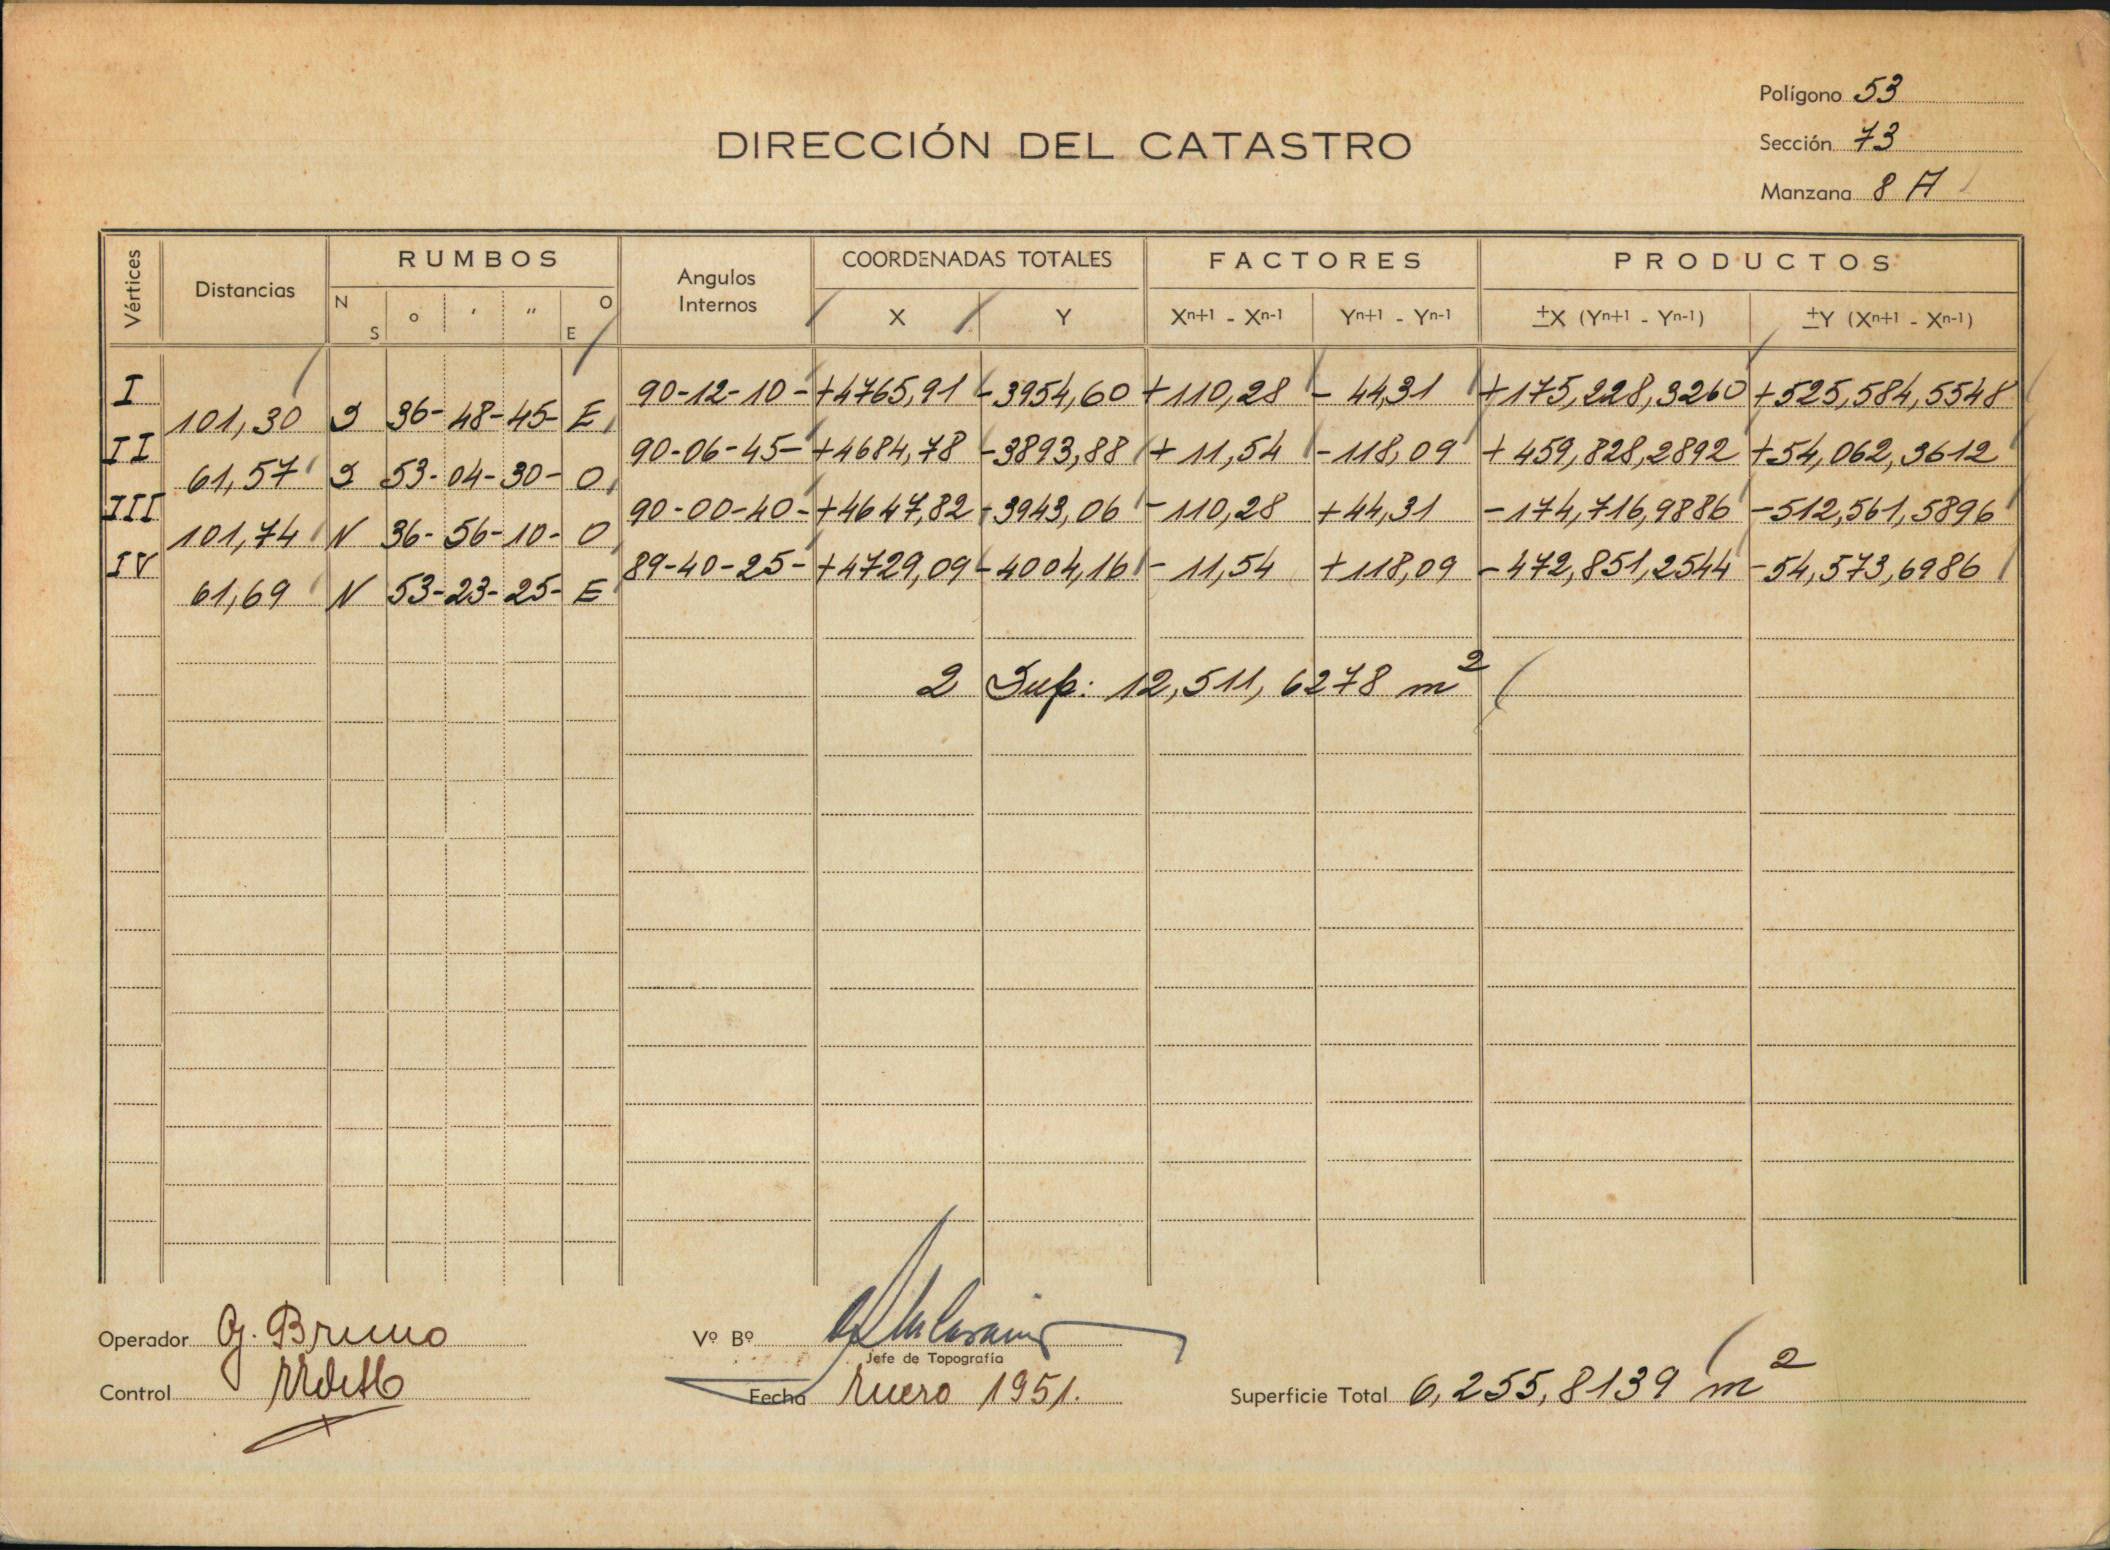 Polígono 53
DIRECCIÓN DEL CATASTRO
Sección 73
Manzana 8 A
Vértices Distancias RUMBOS Angulos Internos COORDENADAS TOTALES FACTORES PRODUCTOS
N S ° ' " O E X Y Xn+1 - Xn-1 Yn+1 - Yn-1 ±X (Yn+1 - Yn-1) ±Y (Xn+1 - Xn-1)
I 90-12-10- +4765,91 -3954,60 +110,28 - 44,31 +175,228,3260 +525,584,5548
101,30 S 36- 48- 45- E
II 90-06-45- +4684,78 -3893,88 + 11,54 -118,09 + 459,828,2892 +54,062,3612
61,57 S 53- 04- 30- O
III 90-00-40- +4647,82 -3943,06 -110,28 +44,31 -174,716,9886 -512,561,5896
101,74 N 36- 56- 10- O
IV 89-40-25- +4729,09 -4004,16 - 11,54 +118,09 -472,851,2544 -54,573,6986
61,69 N 53- 23- 25- E
2 Sup: 12,511,6278 m²
Operador G. Bruno
Vº Bº
Jefe de Topografía
Control
Fecha Enero 1951.
Superficie Total 6,255,8139 m²